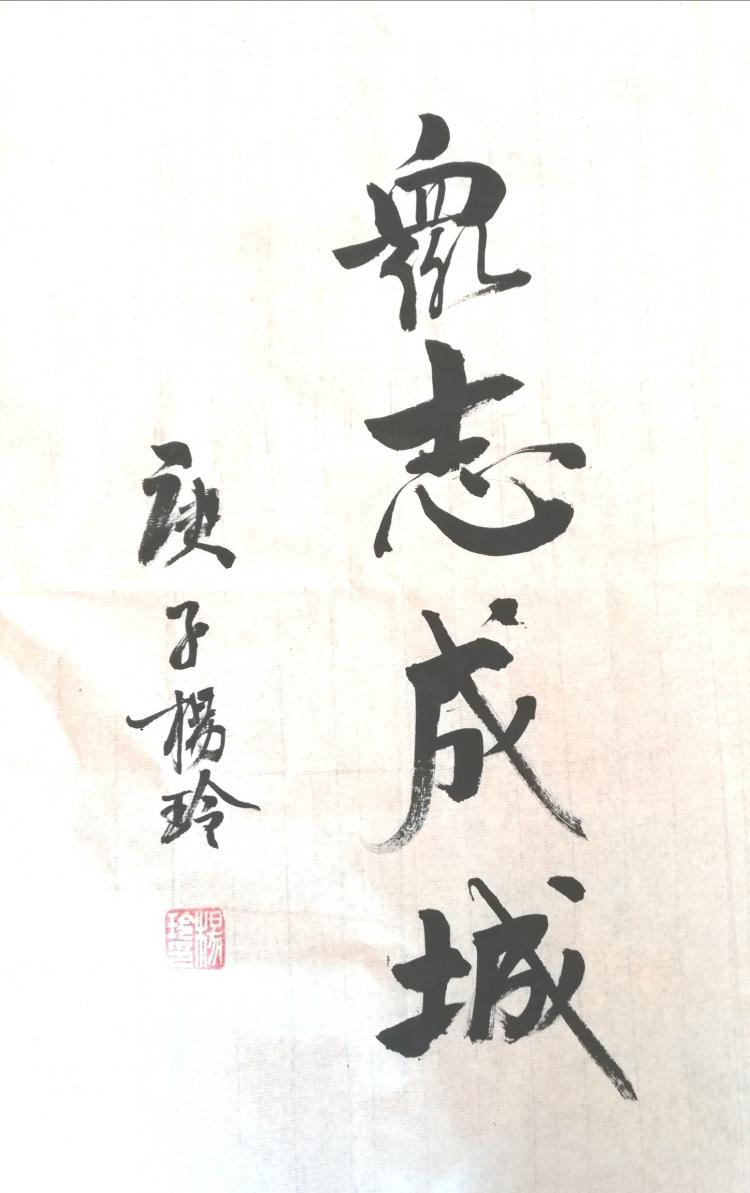 衆志成城
庚子楊玲
楊玲